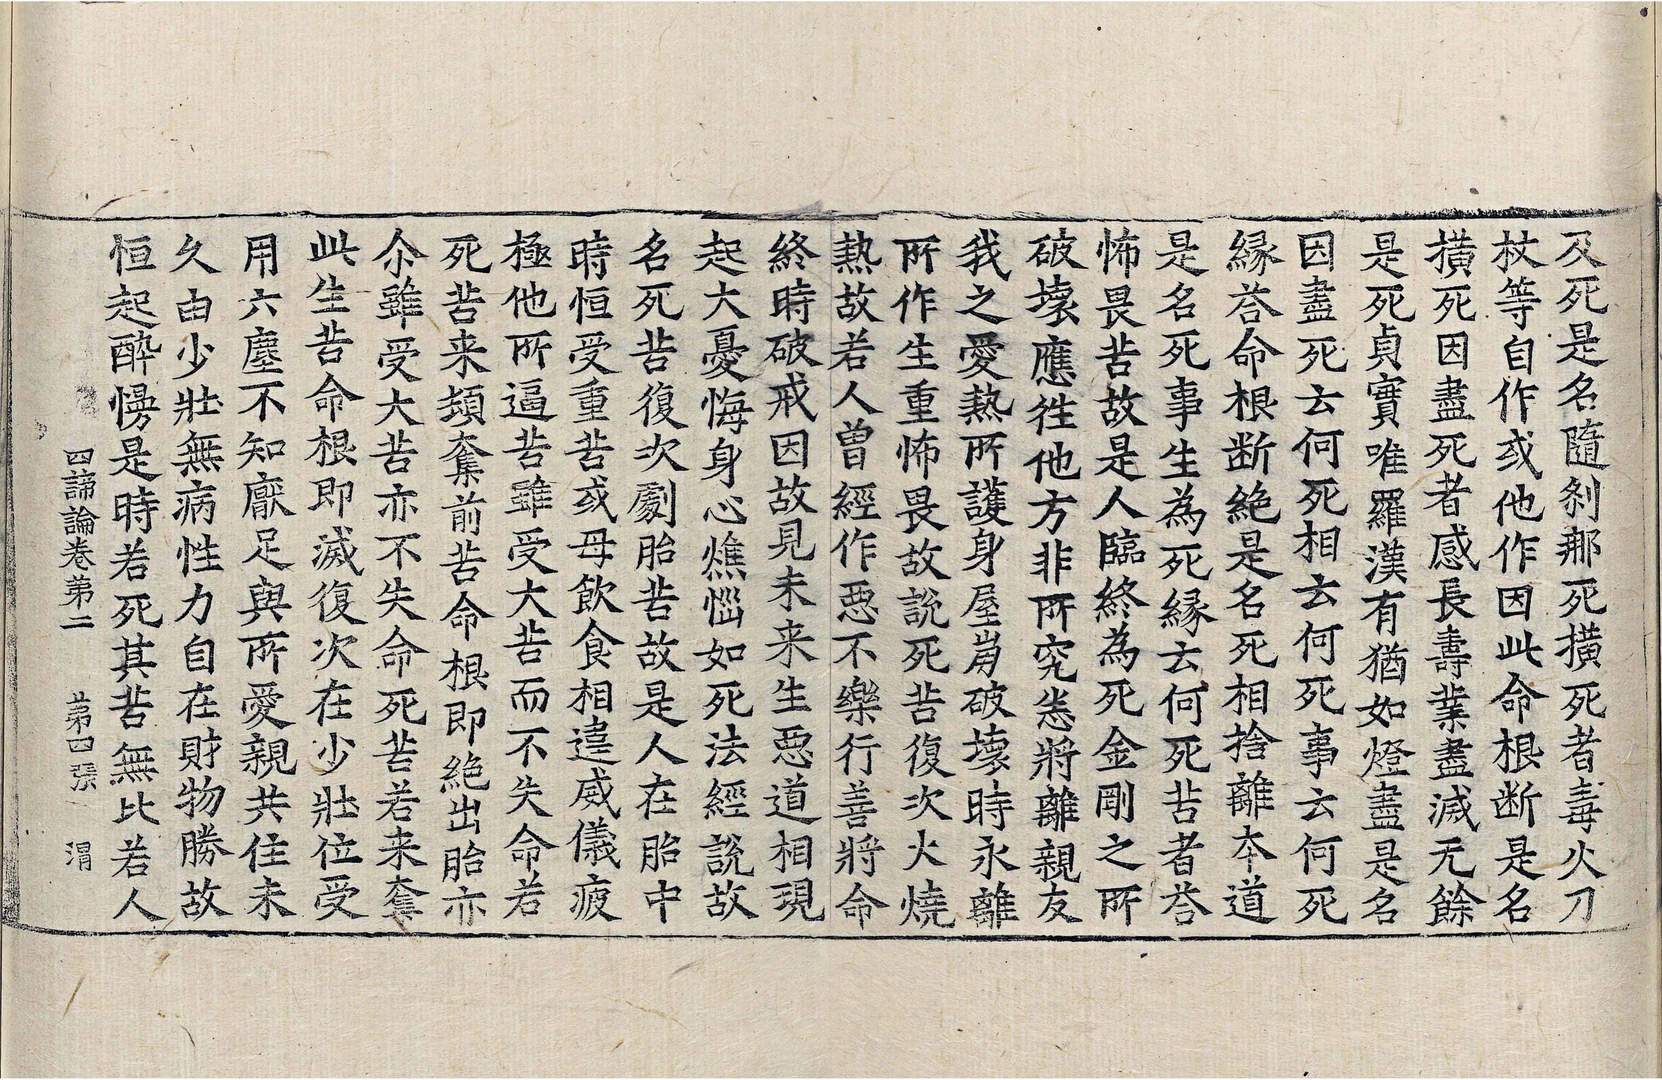 及死是名隨刹那死橫死者毒火刀
杖等自作或他作因此命根断是名
橫死因盡死者感長壽業盡滅无餘
是死貞實唯羅漢有猶如燈盡是名
因盡死云何死相云何死事云何死
縁荅命根断絶是名死相捨離夲道
是名死事生為死縁云何死苦者荅
怖畏苦故是人臨終為死金剛之所
破壞應徃他方非所究悉將離親友
我之愛熱所護身屋崩破壞時永離
所作生重怖畏故說死苦復次火燒
熱故若人曾經作惡不樂行善將命
終時破戒因故見未来生惡道相現
起大憂悔身心燋惱如死法經說故
名死苦復次劇胎苦故是人在胎中
時恒受重苦或母飲食相違威儀疲
極他所逼苦雖受大苦而不失命若
死苦来頓奪前苦命根即絶出胎亦
尒雖受大苦亦不失命死苦若来奪
此生苦命根即滅復次在少壯位受
用六塵不知厭足與所愛親共住未
久由少壯無病性力自在財物勝故
恒起醉慢是時若死其苦無比若人
四諦論卷第二 第四張 渭